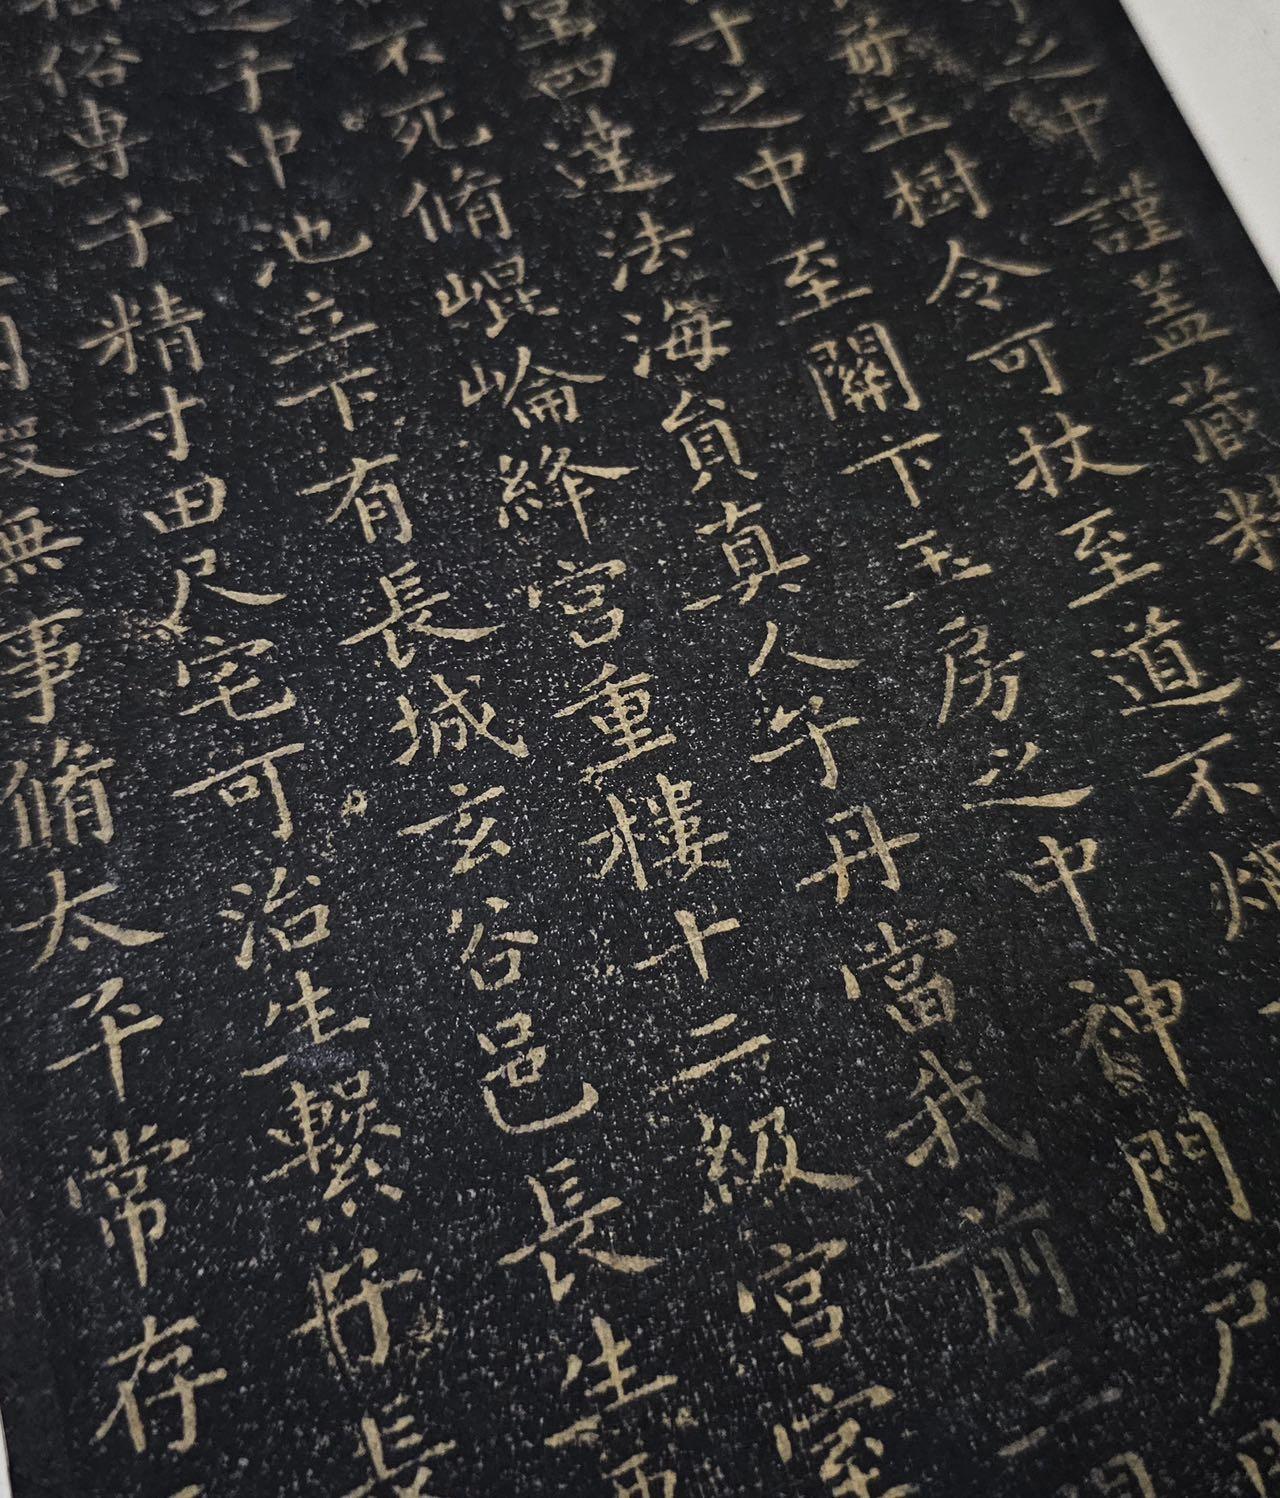 之中謹蓋藏精
玉樹令可杖至道不煩
寸之中至關下玉房之中神門戶
堂四達法海員真人子丹當我前三
不死脩崐崘絳宮重樓十二級宮室
之子中池立下有長城玄谷邑長生要
俗專子精寸田尺宅可治生繫子長
暇無事脩太平常存